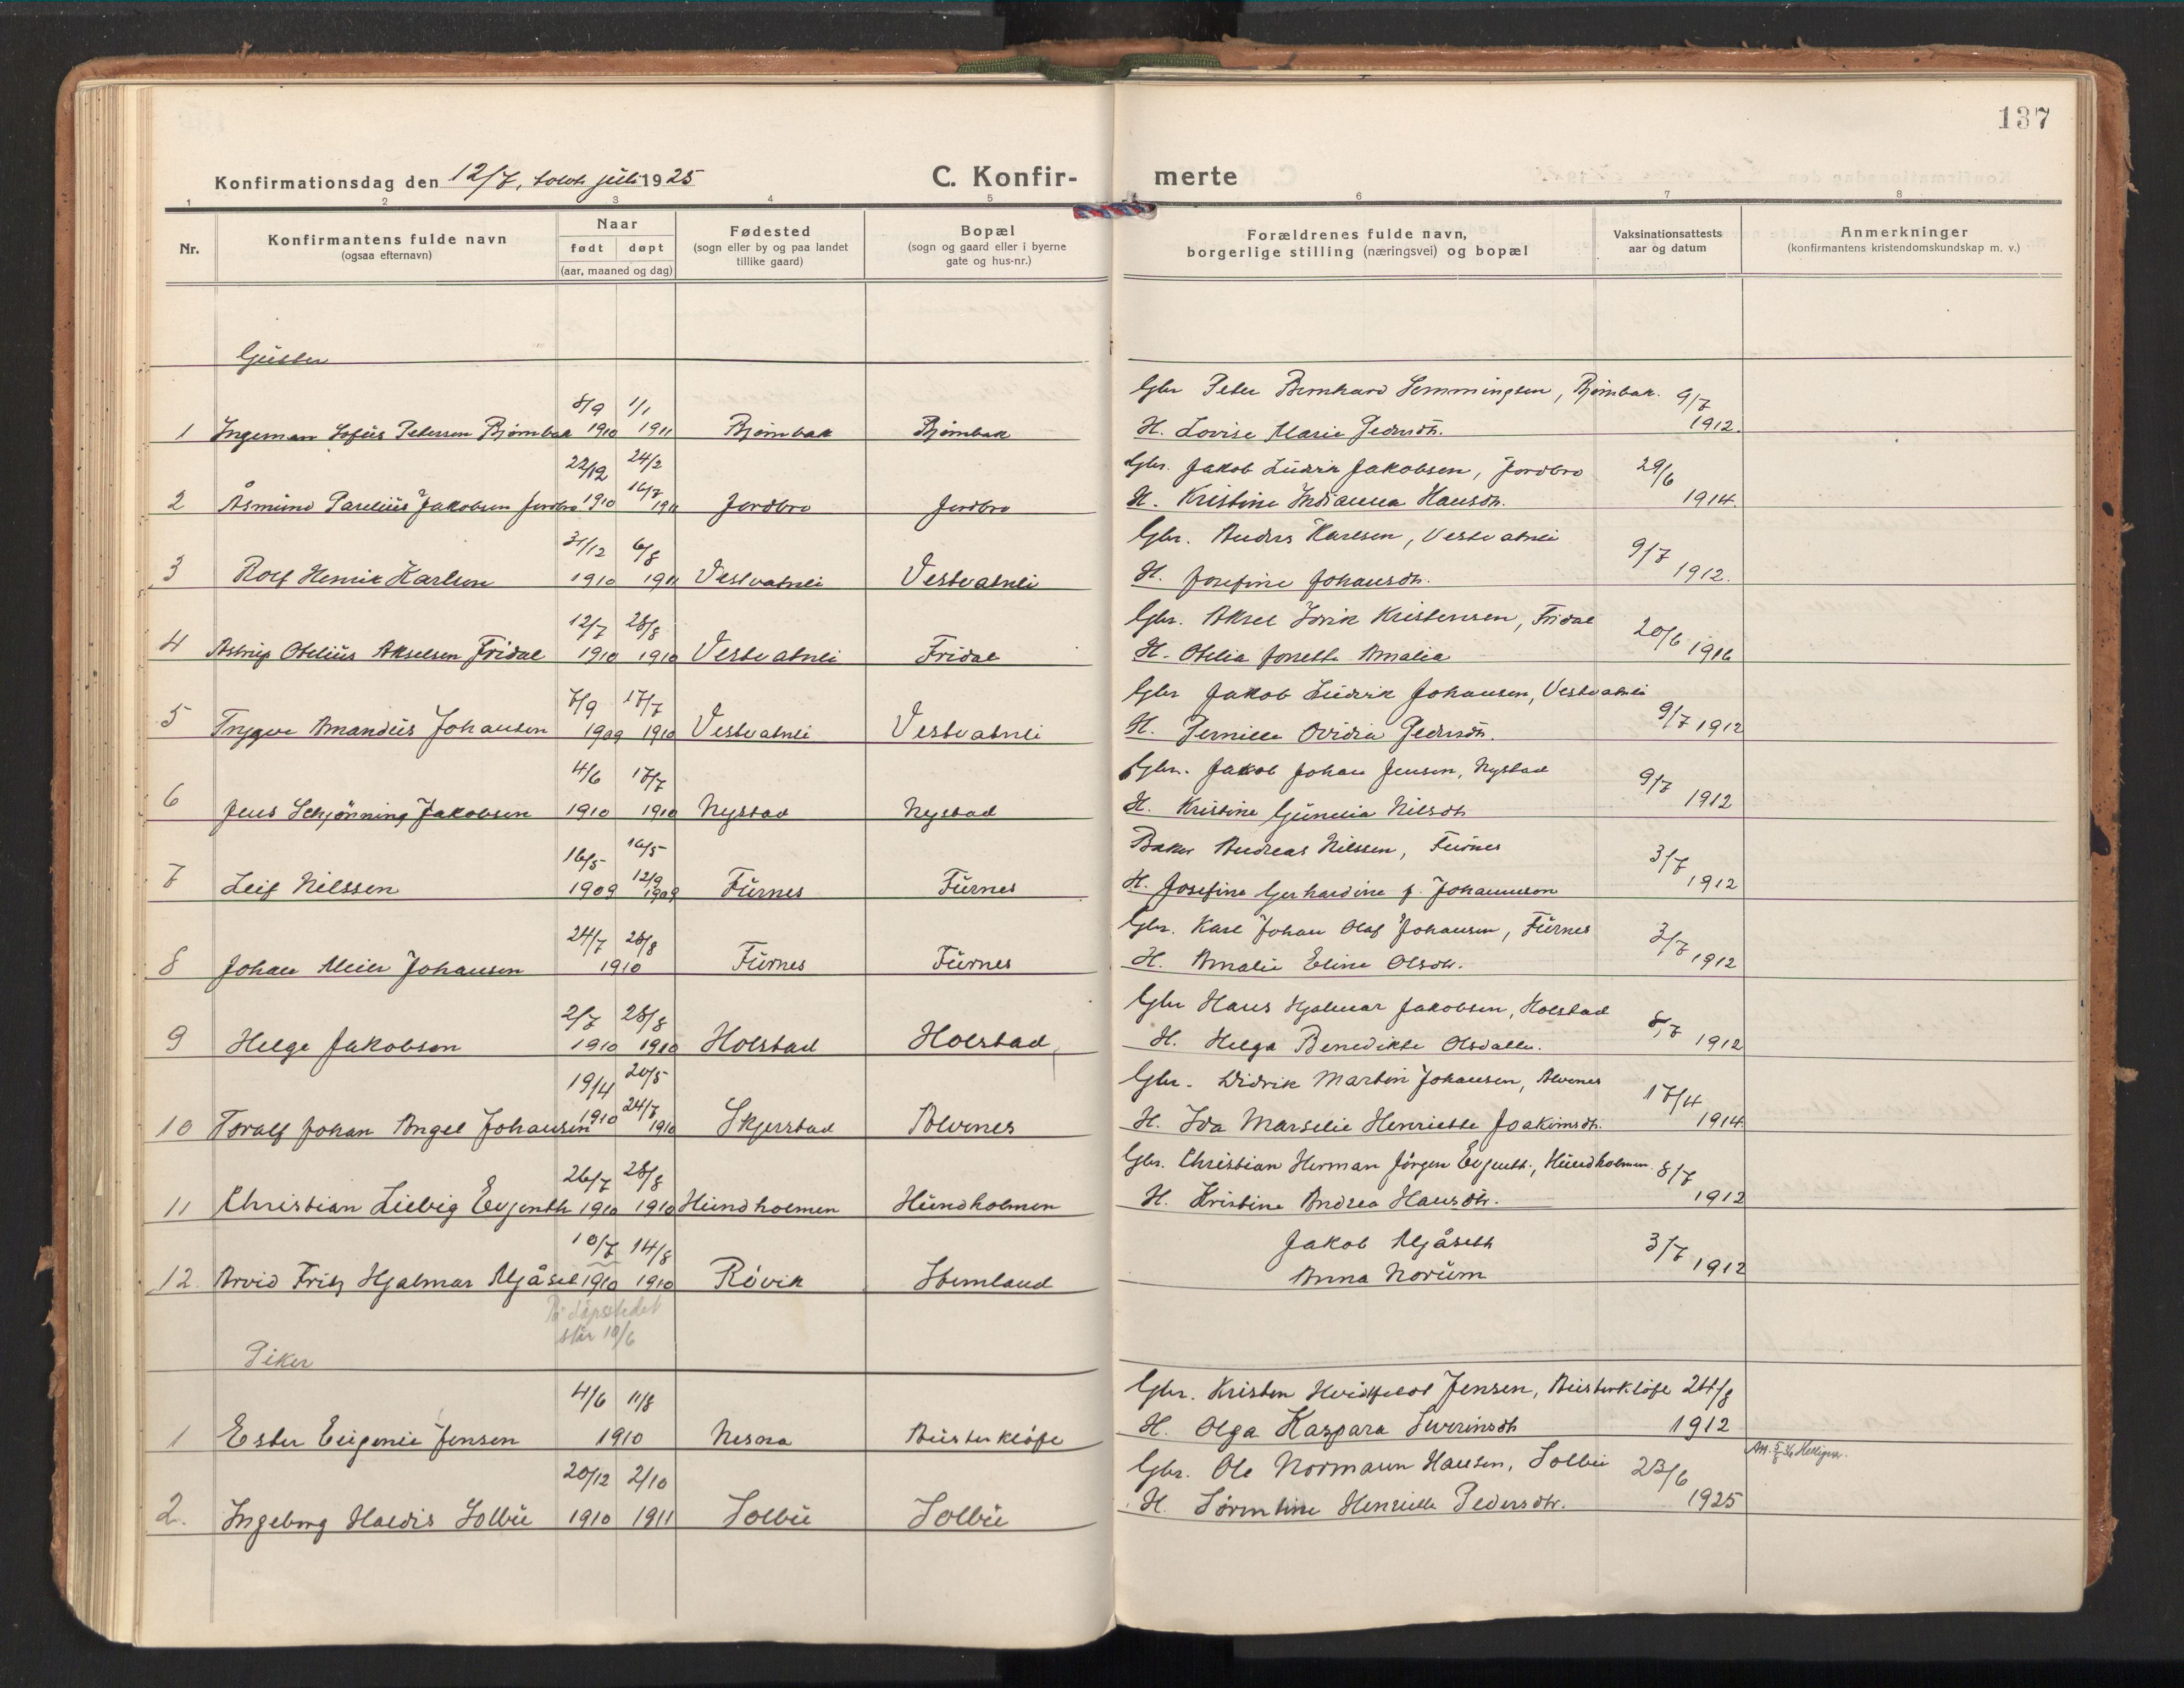 137
Konfirmationsdag den 12/7, tolvte juli 1925
C. Konfir-merte
1 2 3 4 5 6 7 8
Nr.
Konfirmantens fulde navn
(ogsaa efternavn)
Naar
født døpt
(aar, maaned og dag)
Fødested
(sogn eller by og paa landet
tillike gaard)
Bopæl
(sogn og gaard eller i byerne
gate og hus-nr.)
Forældrenes fulde navn,
borgerlige stilling (næringsvei) og bopæl
Vaksinationsattests
aar og datum
Anmerkninger
(konfirmantens kristendomskundskap m. v.)
Gutter
8/9 1/1 Gbr Peter Bernhard Hemmingsen, Bjørnbak. 9/7
1 Ingeman Sofus Petersen Bjørnbak 1910 1911 Bjørnbak Bjørnbak H. Lovise Marie Pedersdtr. 1912.
22/12 24/2 Gbr. Jakob Ludvik Jakobsen, Jordbro 29/6
16/7
2 Åsmund Parelius Jakobsen Jordbro 1910 1911 Jordbro Jordbro H. Kristine Indianna Hansdtr. 1914.
31/12 6/8 Gbr. Anders Karlsen, Vestvatnli 9/7
3 Rolf Henrik Karlsen 1910 1911 Vestvatnli Vestvatnli H. Josefine Johansdtr. 1912.
12/7 28/8 Gbr. Aksel Idrik Kristensen, Fridal 20/6
4 Astrup Otelius Akselsen Fridal 1910 1910 Vestvatnli Fridal H. Otelia Jonette Amalia 1916
7/9 17/7 Gbr Jakob Ludvik Johansen, Vestvatnli
5 Trygve Amandus Johansen 1909 1910 Vestvatnli Vestvatnli H. Pernille Ovidia Pedersdtr. 9/7 1912
4/6 17/7 Gbr. Jakob Johan Jensen, Nystad 9/7
6 Jens Schjønning Jakobsen 1910 1910 Nystad Nystad H. Kristine Gunelia Nilsdtr 1912
16/5 16/5 Baker Andreas Nilssen, Furnes 3/7
12/9
7 Leif Nilssen 1909 1909 Furnes Furnes H. Josefine Gerhardine f. Johannson 1912
24/7 28/8 Gbr. Karl Johan Olaf Johansen, Furnes 3/7
8 Johan Meier Johansen 1910 Furnes Furnes H. Amalie Eline Olsdtr. 1912
2/7 28/8 Gbr Hans Hjalmar Jakobsen, Holstad 8/7
9 Helge Jakobsen 1910 1910 Holstad Holstad H. Helga Benedikte Olsdatter. 1912
19/4 20/5 Gbr. Didrik Martin Johansen, Alvenes 17/4
24/7
10 Toralf Johan Angel Johansen 1910 1910 Skjerstad Alvenes H. Ida Marselie Henriette Joakimsdtr. 1914
26/7 28/8 Gbr. Christian Herman Jörgen Evjenth., Hundholmen 8/7
11 Christian Liebig Evjenth 1910 1910 Hundholmen Hundholmen H. Kristine Andrea Hansdtr. 1912
10/7 14/8 Jakob Mjåseth 3/7
12. Arvid Fritz Hjalmar Mjåset 1910 1910 Røvik Stemland Anna Norum 1912
På dåpsstedet
står 10/6
Piker
4/6 11/8 Gbr. Kristen Hvidtfeldt Jensen, Austerkløft 24/8
1 Ester Eugenie Jensen 1910 Nesna Austerkløft H. Olga Kaspara Sverinsdtr 1912
20/12 2/10 Gbr. Ole Normann Hansen, Solbu 23/6
2. Ingeborg Haldis Solbu 1910 1911 Solbu Solbu H. Sørentine Henrielle Pedersdtr. 1925